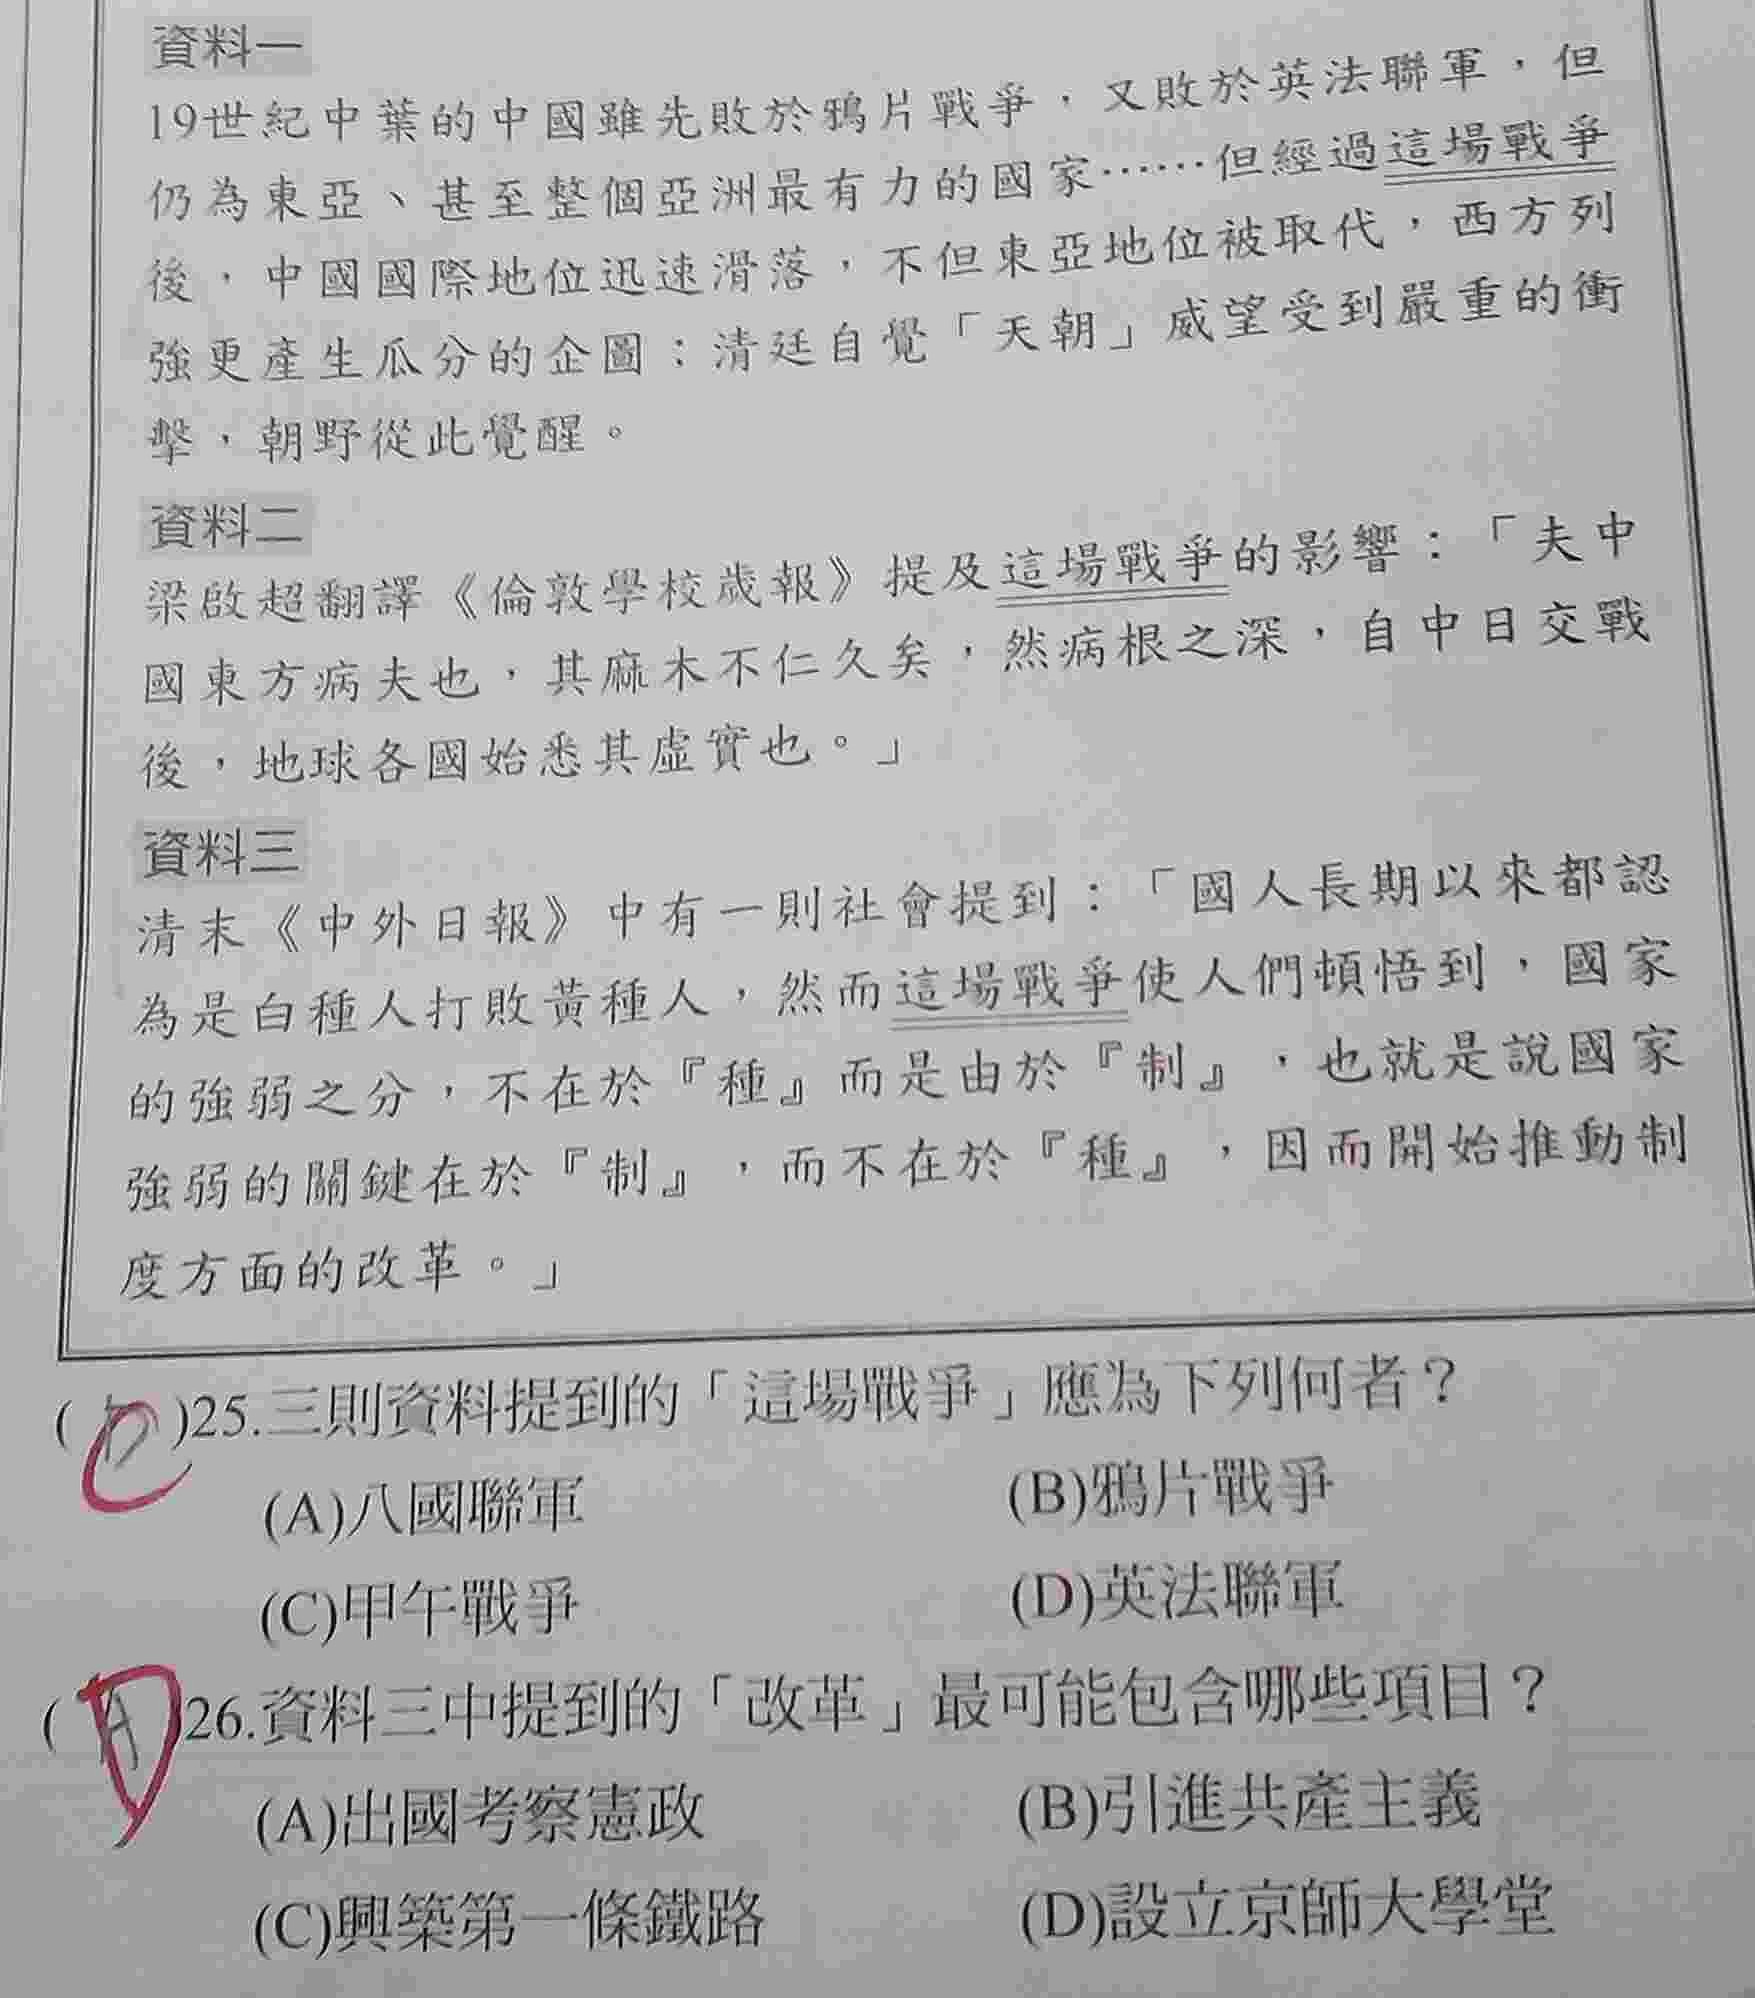 資料一
19世紀中葉的中國雖先敗於鴉片戰爭，又敗於英法聯軍，但
仍為東亞、甚至整個亞洲最有力的國家……但經過這場戰爭
後，中國國際地位迅速滑落，不但東亞地位被取代，西方列
強更產生瓜分的企圖；清廷自覺「天朝」威望受到嚴重的衝
擊，朝野從此覺醒。
資料二
梁啟超翻譯《倫敦學校歲報》提及這場戰爭的影響：「夫中
國東方病夫也，其麻木不仁久矣，然病根之深，自中日交戰
後，地球各國始悉其虛實也。」
資料三
清末《中外日報》中有一則社會提到：「國人長期以來都認
為是白種人打敗黃種人，然而這場戰爭使人們頓悟到，國家
的強弱之分，不在於『種』而是由於『制』，也就是說國家
強弱的關鍵在於『制』，而不在於『種』，因而開始推動制
度方面的改革。」
( D C )25.三則資料提到的「這場戰爭」應為下列何者？
(A)八國聯軍 (B)鴉片戰爭
(C)甲午戰爭 (D)英法聯軍
( A D )26.資料三中提到的「改革」最可能包含哪些項目？
(A)出國考察憲政 (B)引進共產主義
(C)興築第一條鐵路 (D)設立京師大學堂